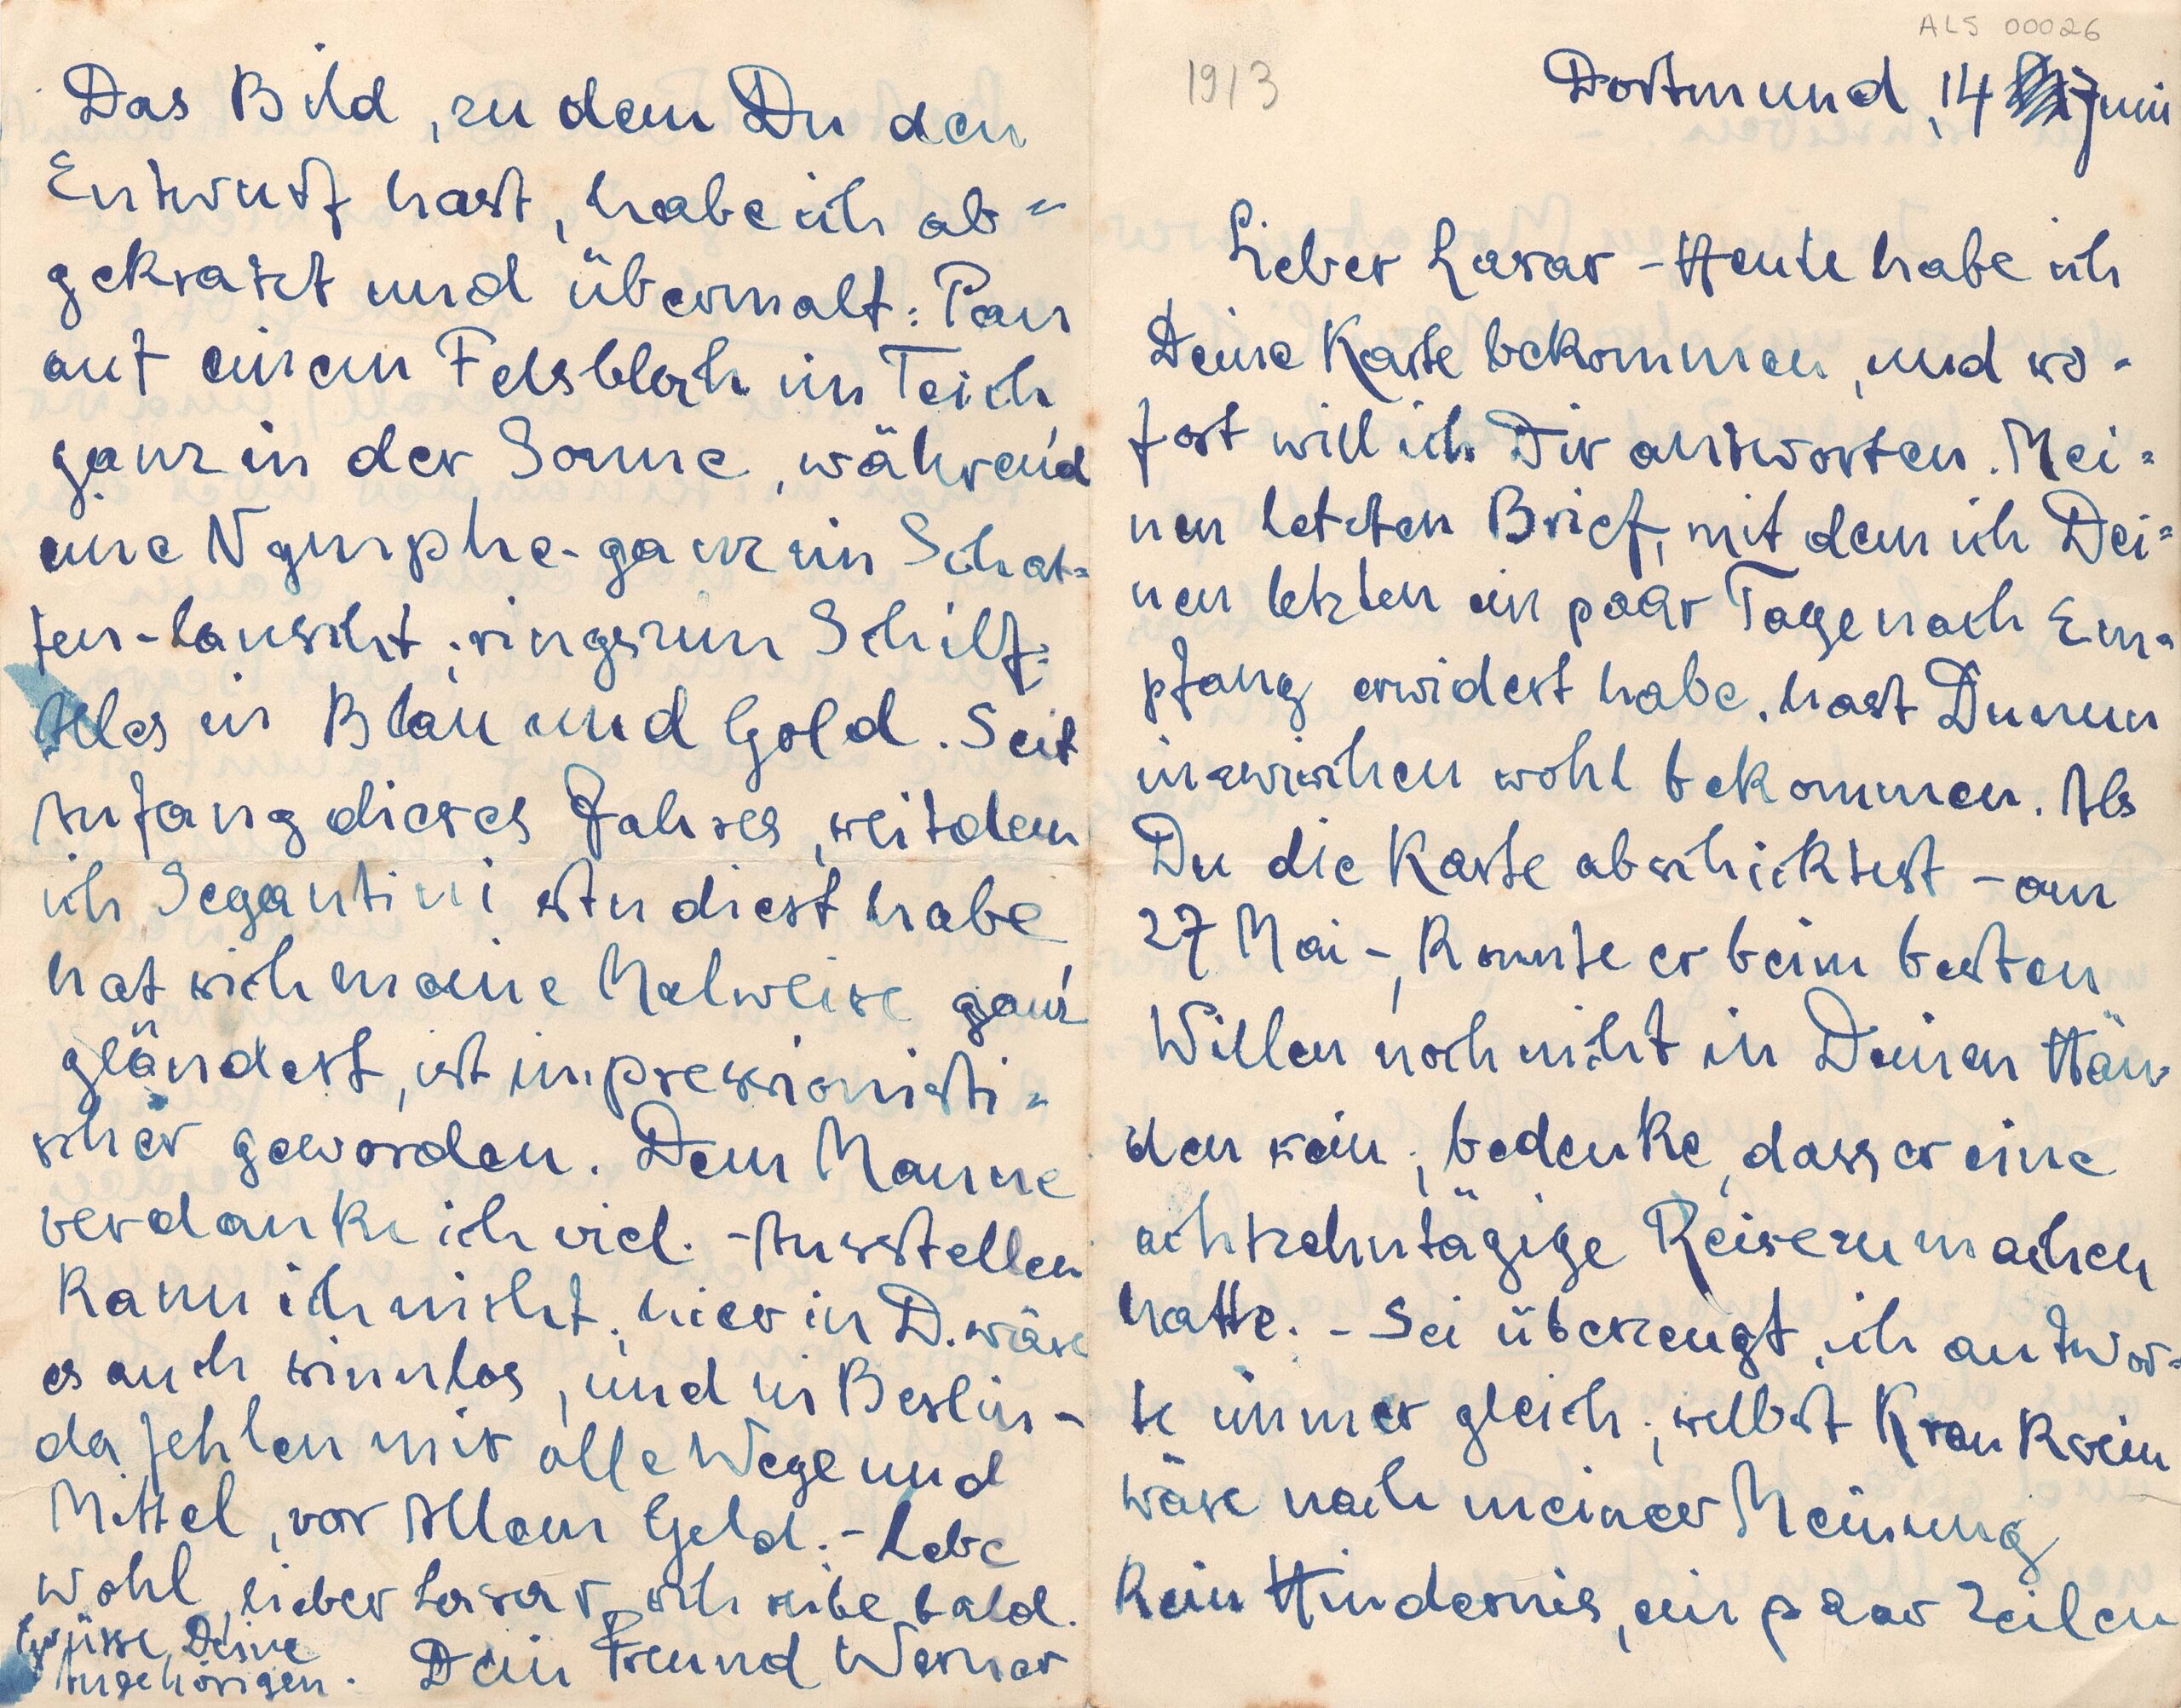 ALS 00026
1913
Dortmund, 14 Juni
Lieber Lasar – Heute habe ich
Deine Karte bekommen, und so-
fort will ich Dir antworten. Mei=
nen letzten Brief, mit dem ich Dei=
nen letzten ein paar Tage nach Em=
pfang erwidert habe, hast Du nun
inzwischen wohl bekommen. Als
Du die Karte abschicktest – am
27 Mai –, konnte er beim besten
Willen noch nicht in Deinen Hän=
den sein; bedenke, dass er eine
achtzehntägige Reise zu machen
hatte. – Sei überzeugt, ich antwor=
te immer gleich; selbst Kranksein
wäre nach meiner Meinung
kein Hindernis, ein paar Zeilen
Das Bild, zu dem Du den
Entwurf hast, habe ich ab=
gekratzt und übermalt: Pan
auf einem Felsblock im Teich,
ganz in der Sonne, während
eine Nymphe - ganz im Schat=
ten - lauscht; ringsum Schilf;
Alles in Blau und Gold. Seit
Anfang dieses Jahres, seitdem
ich Segantini studiert habe,
hat sich meine Malweise ganz
gländert, ist impressionisti=
scher geworden. Dem Manne
verdanke ich viel. – Ausstellen
kann ich nicht; hier in D. wäre
es auch sinnlos, und in Berlin –
da fehlen mir alle Wege und
Mittel, vor Allem Geld. – Lebe
wohl, lieber Lasar, schreibe bald.
Grüsse Deine
Angehörigen. Dein Freund Werner